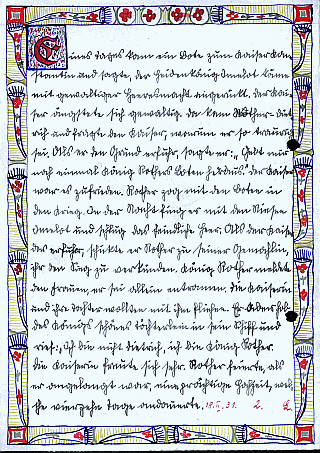 Eines Tages kam ein Bote zum Kaiser Kon-
stantin und sagte, der Heidenkönig Ymelot käme
mit gewaltiger Heeresmacht angerückt. der Kai-
ser ängstete sich gewaltig. da kam Rother-Diet-
rich und fragte den Kaiser, warum er so traurig
sei. Als er den Grund erfuhr, sagte er: „Gebt mir
noch einmal König Rothers Boten heraus." der Kaiser
war es zufrieden. Rother zog mit den Boten in
den Krieg. In der Nacht fing er mit den Riesen
Ymelot und schlug das feindliche Heer. Als der Kaiser
das erfuhr, schickte er Rother zu seiner Gemahlin,
ihr den Sieg zu verkünden. König Rother meldete
den Frauen, er sei allein entronnen. die Kaiserin
und ihre Tochter wollten mit ihm fliehen. Er
des Königs schönes Töchterlein in sein Schiff und
rief: „Ich bin nicht Dietrich, ich bin König Rother.
die Kaiserin freute sich sehr. Rother feierte, als
er angelangt war, eine prächtige Hochzeit, wel-
che vierzehn Tage andauerte. 18.II.31. 2.